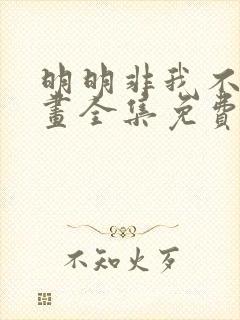 明明非我不
畫全集免費
不知火歹